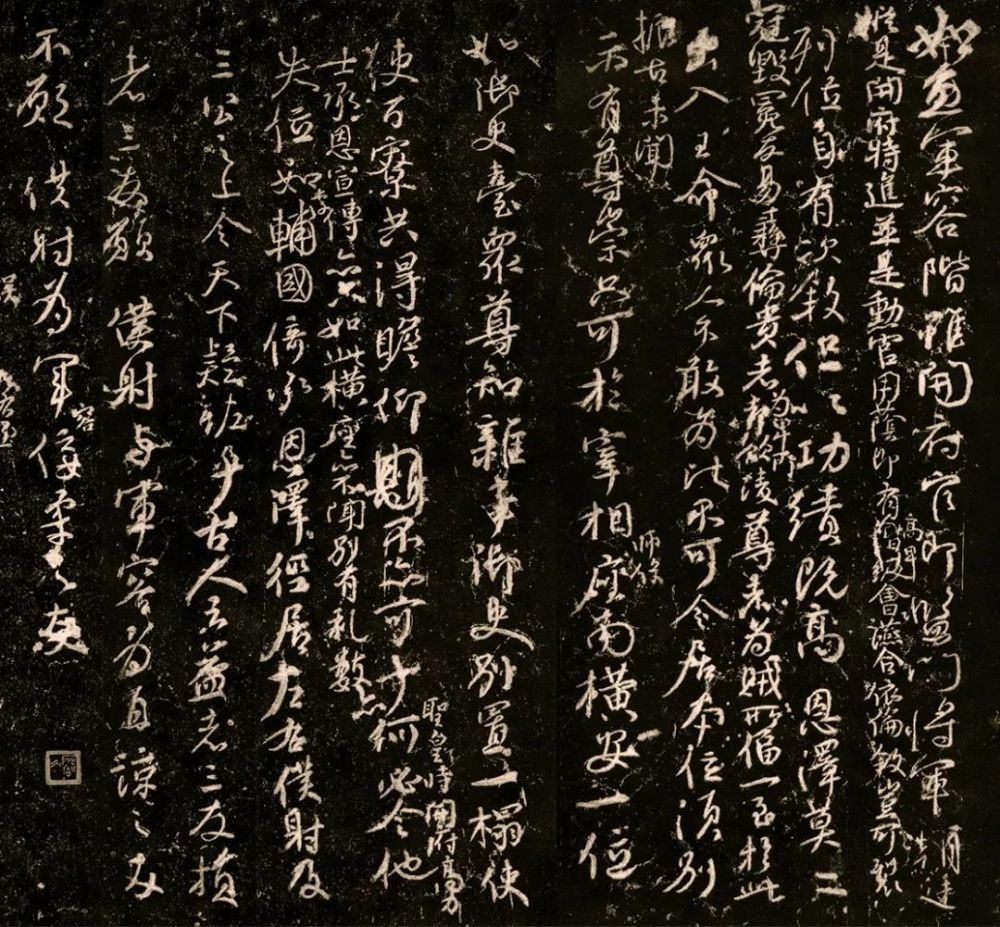 如魚軍容階雖開府官即監門將軍朝廷
縱是開府特進並是勳官用蔭即有高卑會讌合依倫敘豈可裂
列位自有次敘但以功績既高恩澤莫二
冠毀冕反易彝倫貴者為卑所凌尊者為賊所偪一至於此
出入王命眾人不敢為比不可令居本位須別
振古未聞
示有尊崇只可於宰相師保座南橫安一位
如御史臺眾尊知雜事御史別置一榻使
使百寮共得瞻仰不亦可乎何必令他
聖皇時開府高力
士承恩宣傳亦只如此橫座亦不聞別有礼數亦
失位如李輔國倚承恩澤徑居左右僕射及
三公之上令天下疑怪乎古人云益者三友損
者三友願僕射與軍容為直諒之友
不願僕射為軍容佞柔之友